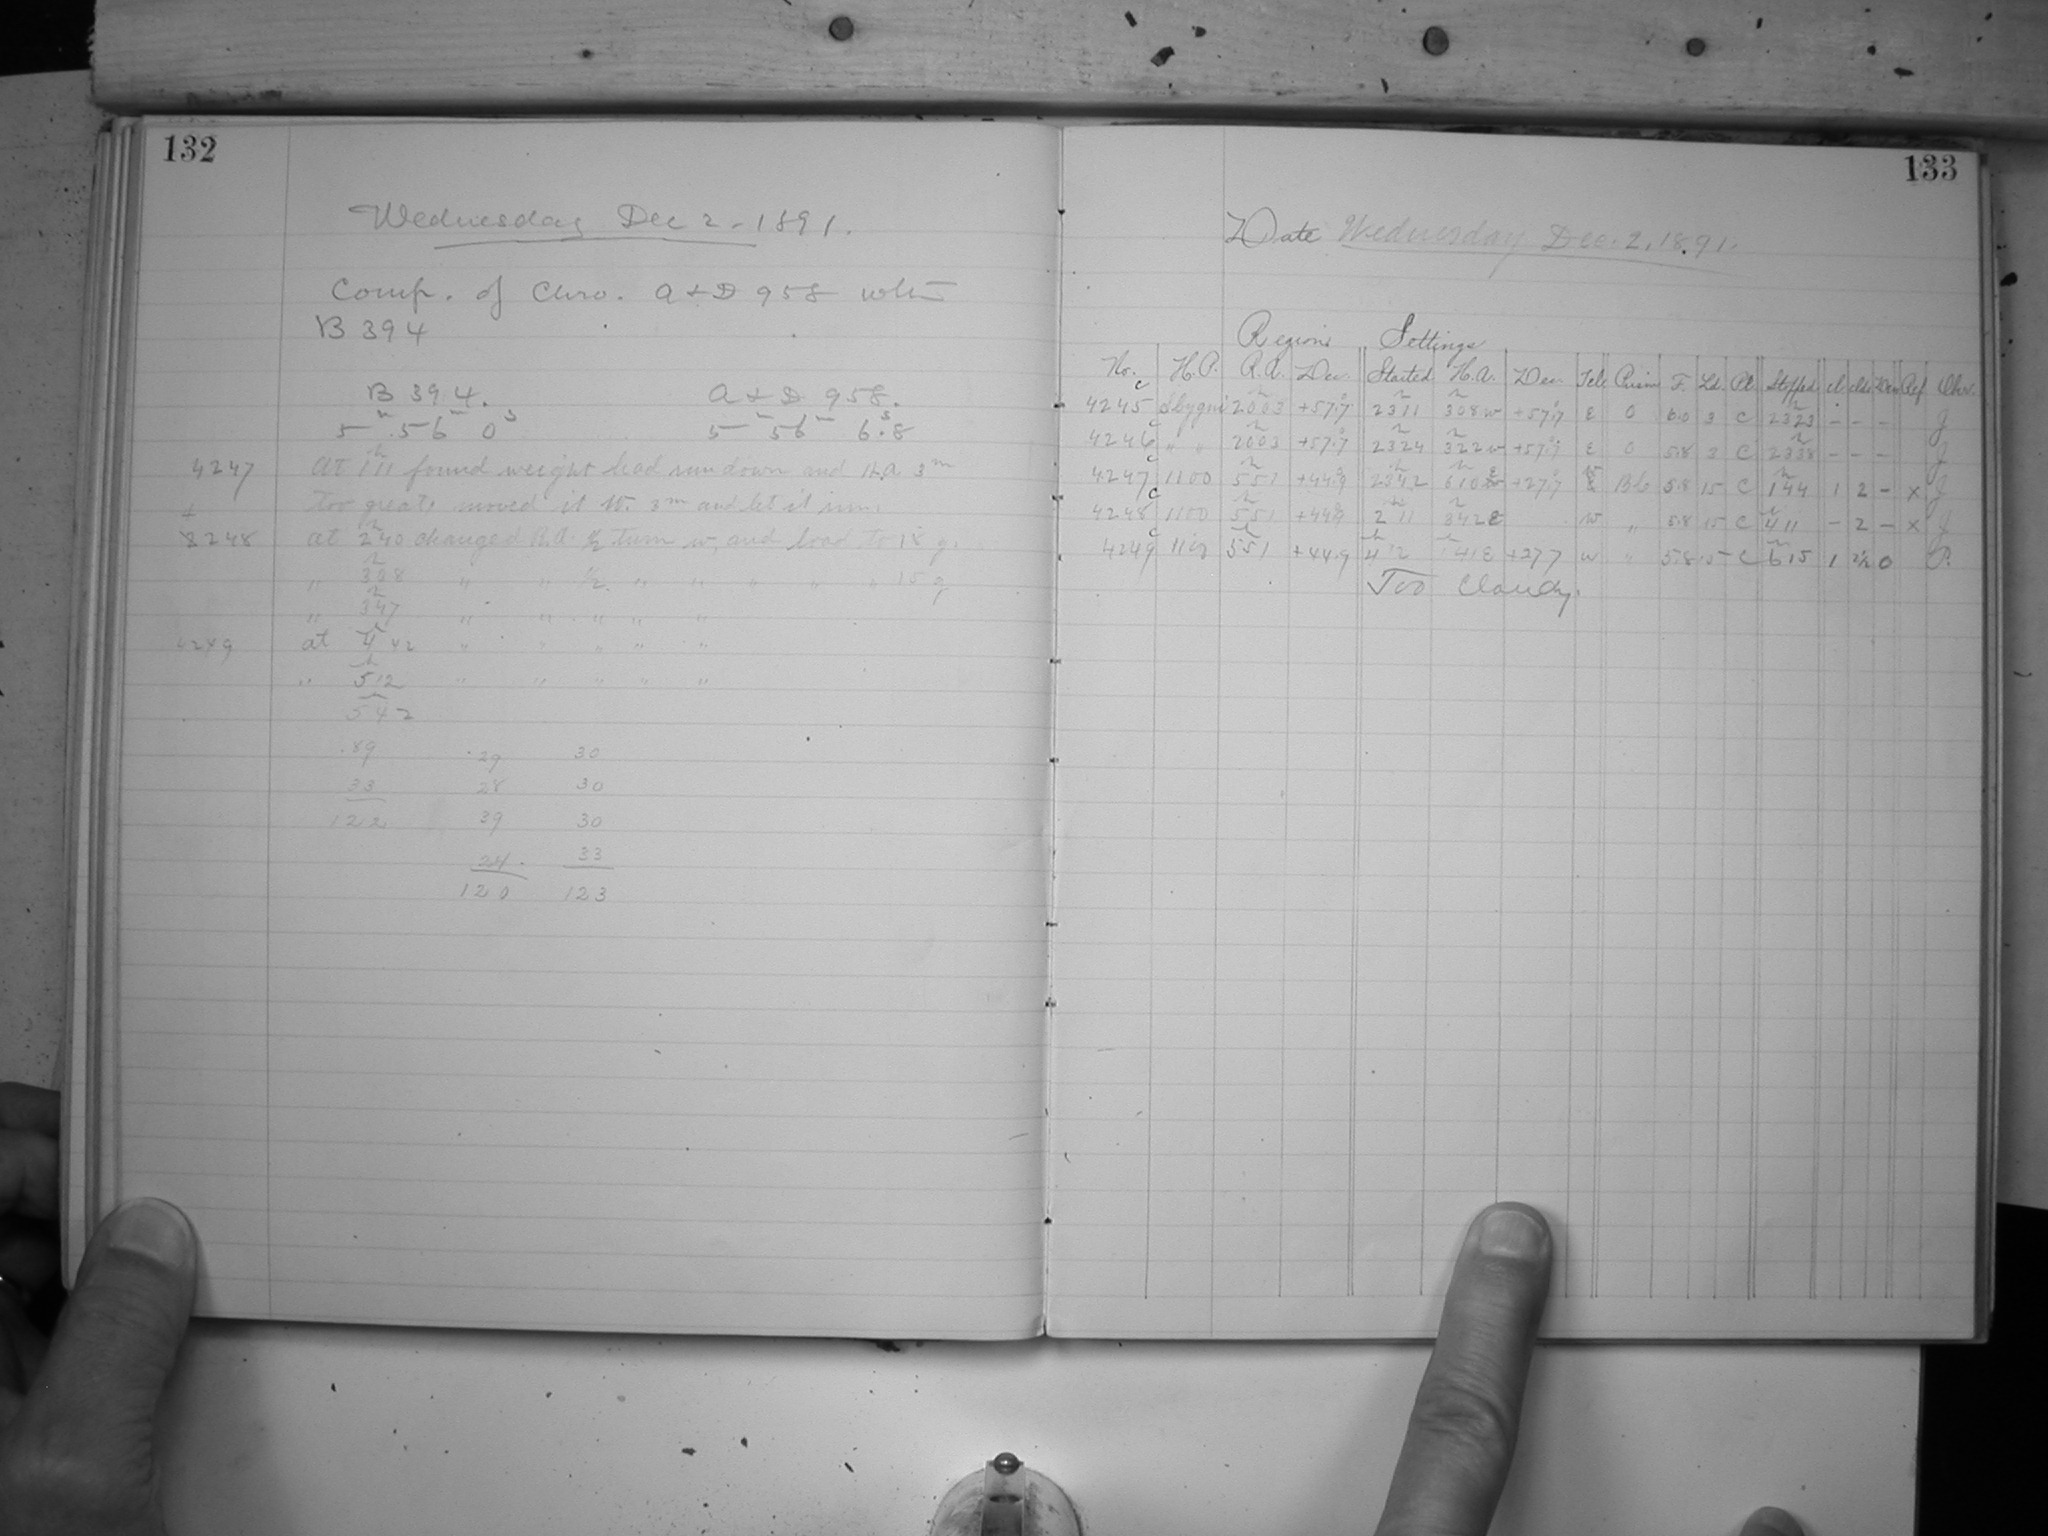 132
Wednesday Dec 2 - 1891.
Comp. of Chro. A & D 958 with
B 394
B 394. A & D 958.
5h 56m 0s 5h 56m 6.8s
4247 At 1h11 found weight had run down and H.A. 3m
+ too great, moved it W. 3m and let it run.
8248 at 2h40 changed R.A. 1/2 turn w, and load to 18 g.
" 3h08 " " 1/2 " " " " " 15 g
" 3h47 " " " " "
4249 at 4h42 " " " " "
" 5h12 " " " " "
5h42
.89 .29 30
33 28 30
122 39 30
24 33
120 123
133
Date Wednesday Dec. 2, 1891.
Regions Settings
No. H.P. R.A. Dec. Started H.A. Dec. Tele Prism F. Ld. Pl. Stopped cl Ref Obs.
C 4245 20h03 +57°.7 23h11 3h08 w +57°.7 E 0 6.0 3 C 23h23 - - - J
C 4246 " " 20h03 +57°.7 23h24 3h22 w +57°.7 E 0 5.8 3 C 23h38 - - - J
C 4247 1100 5h51 +44°.9 23h42 6h10 E +27°.7 W 5.8 15 C 1h44 1 2 - x J
C 4248 1100 5h51 +44°.9 2h11 3h42 E W " 5.8 15 C 4h11 - 2 - x J
C 4249 5h51 +44.9 4h12 1h41 E +27.7 w " 5.8 15 C 6h15 1 2½ 0 P.
Too Cloudy.